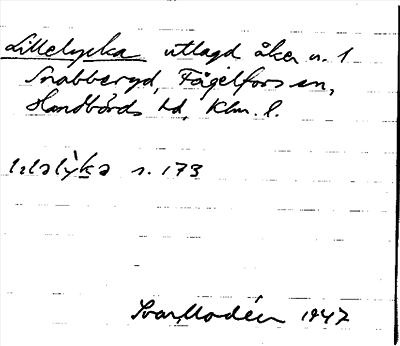 Lillelycka utlagd åker n. 1
Snabberyd, Fågelfors sn,
Handbörds hd, Klm. l.
s. 173
Ivar Modéer 1947